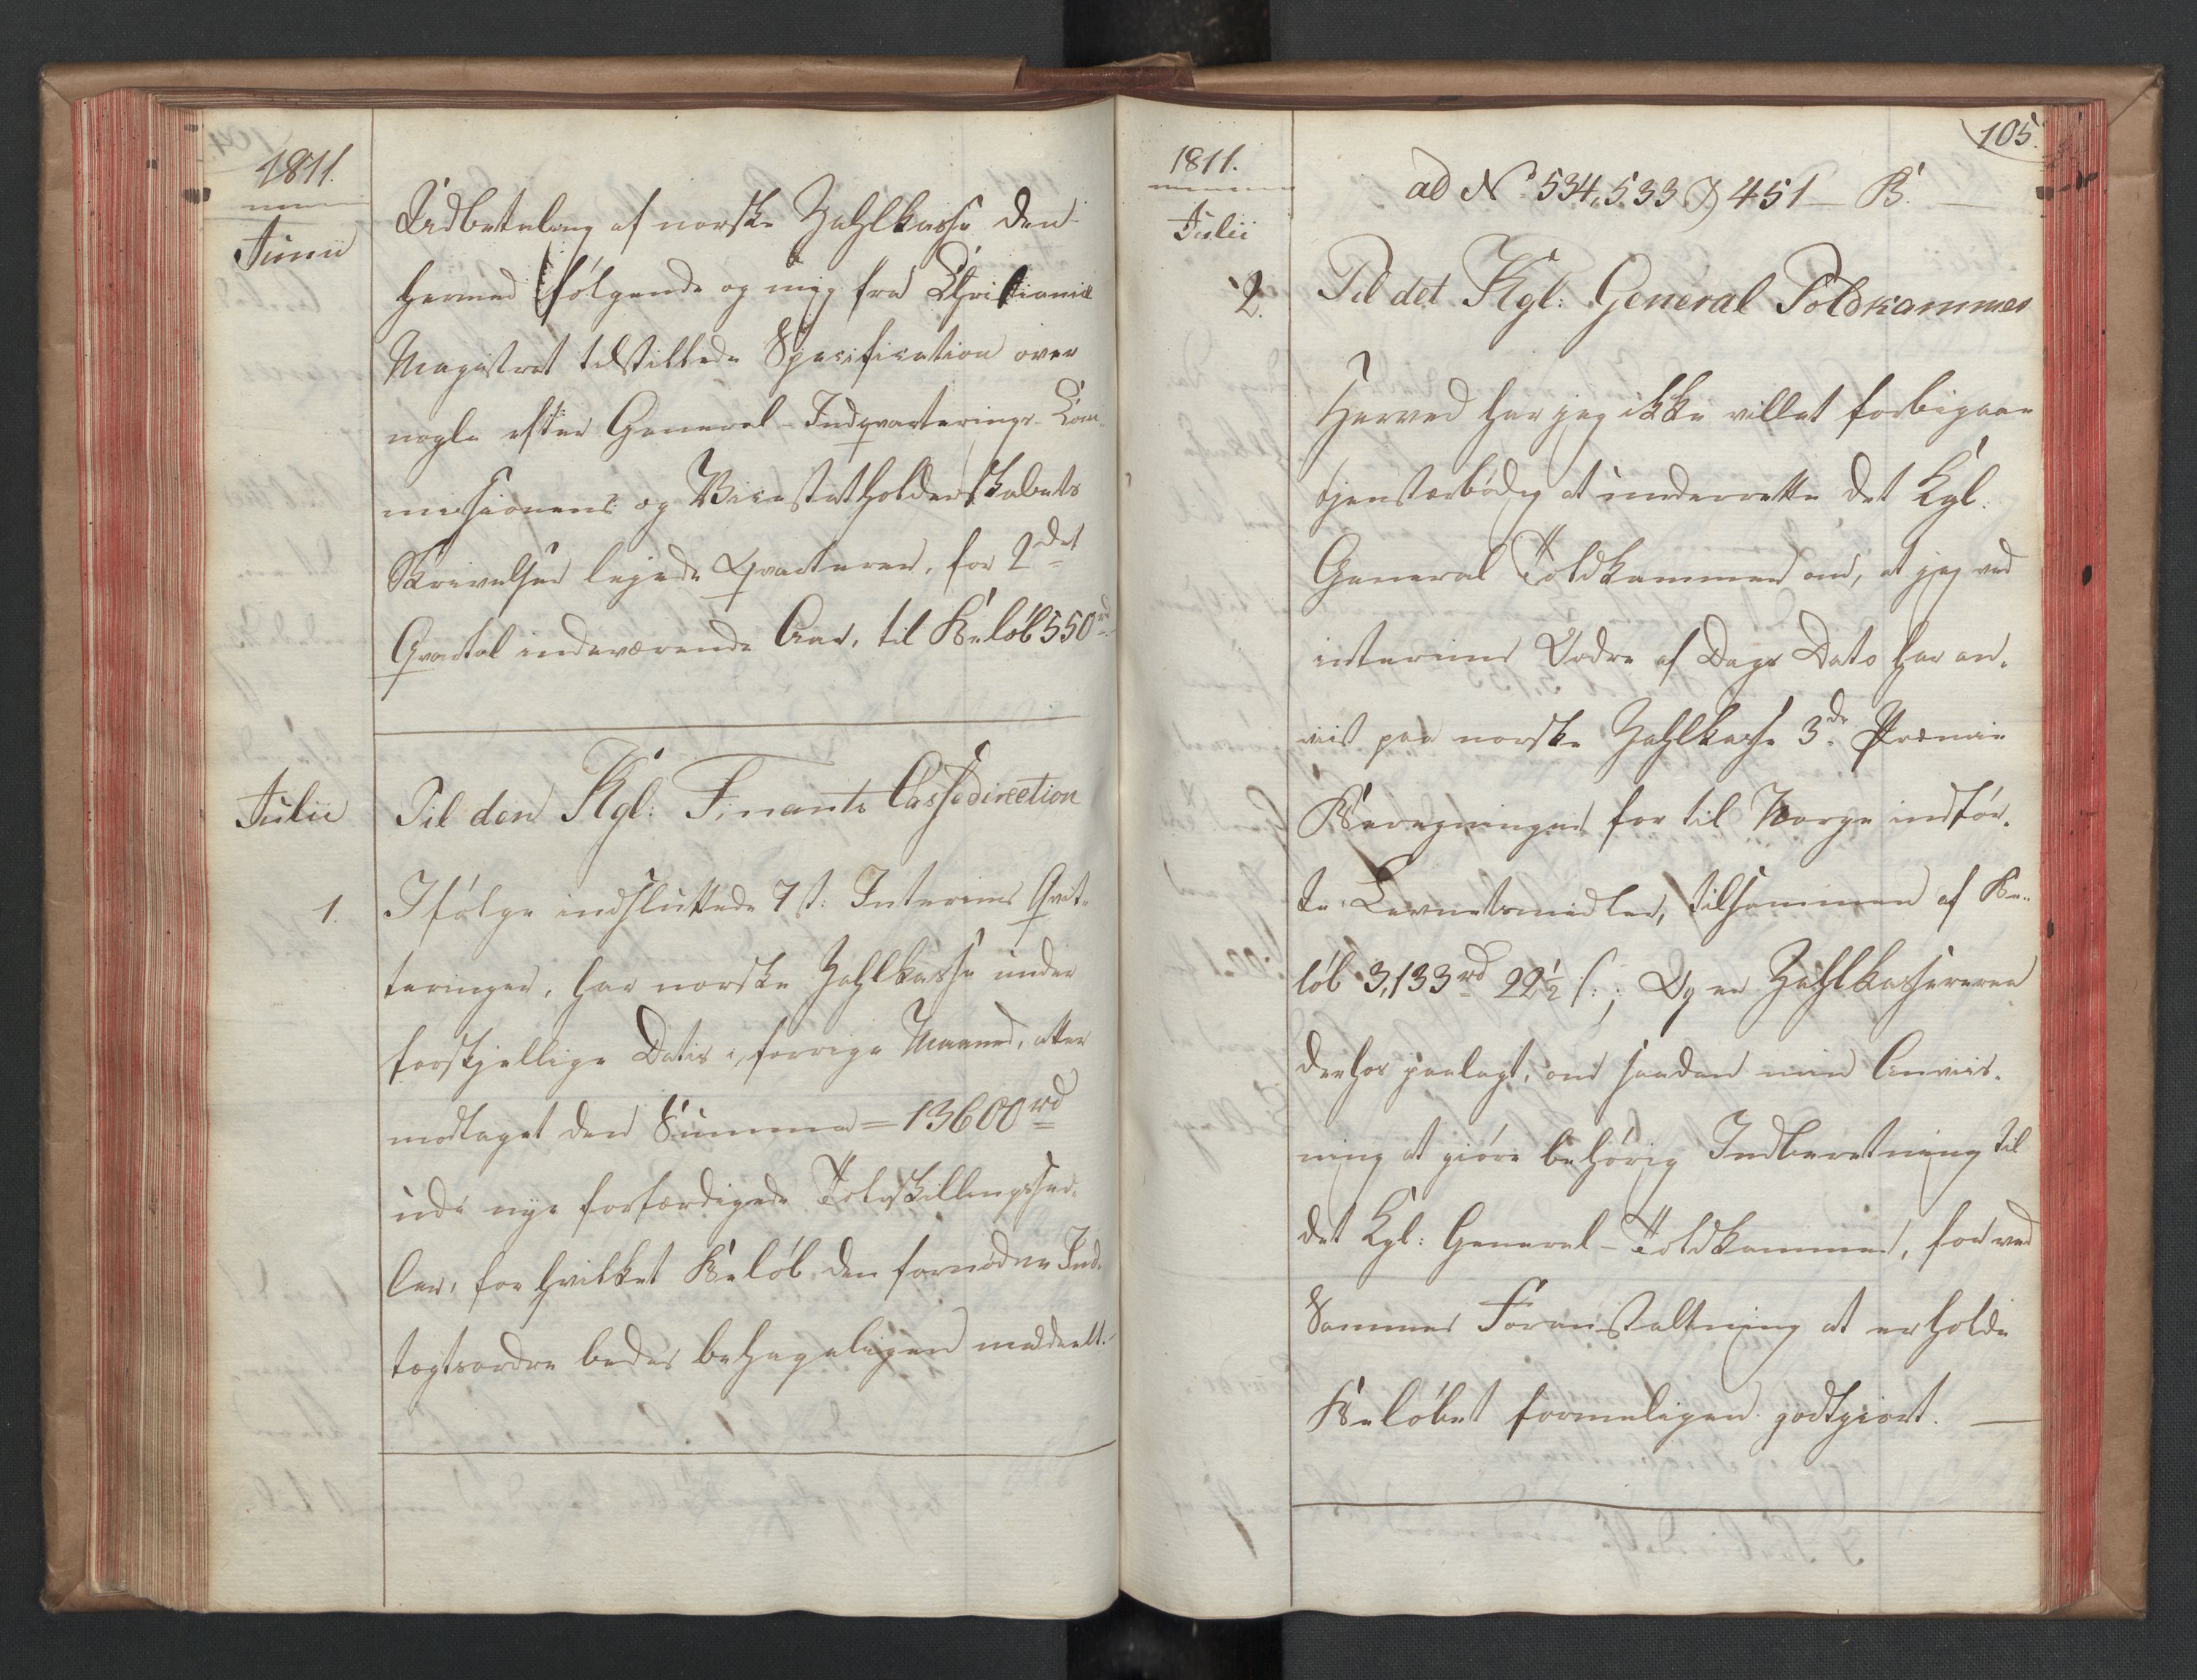 1811.
Junii
Udbetaling af norske Zahlkasse den
hermed følgende og mig fra Christiania
Magistrat tilstillede Specification over
nogle efter General-Indqvarterings-Com-
missionens og Vicestatholderskabets
Skrivelser lejede Qvarterer, for 2det
Qvartal indeværende Aar, til Beløb 550 rd
Julii
Til den Kgl: Finants Cassedirection
1.
Ifølge indsluttede 7 st: Interims Qvit-
teringer, har norske Zahlkasse under
forskjellige Datis i forrige Maaned, atter
modtaget den Summa = 13600 rd
udi nye forfærdigede Tolvskillingssed-
ler, for hvilket Beløb den fornødne Ind-
tægtsordre bedes behageligen meddeelt.
105.
1811.
Julii
ad No 534, 533 & 451 — B. —
2.
Til det Kgl: General Toldkammer
Herved har jeg ikke villet forbigaae
tjenstærbødig at underrette det Kgl.
General Toldkammer om, at jeg ved
interims Ordre af Dags Dato har an-
viist paa norske Zahlkasse 3de Præmie
Beregninger for til Norge indfør-
te Levnetsmidler, tilsammen af Be-
løb 3,133 rd 22½ s:; Og er Zahlkassereren
derhos paalagt, om saadan min Anviis-
ning at giøre behørig Indberetning til
det Kgl: General-Toldkammer, for ved
Sammes Foranstaltning at erholde
Beløbet formeligen godtgiort. —